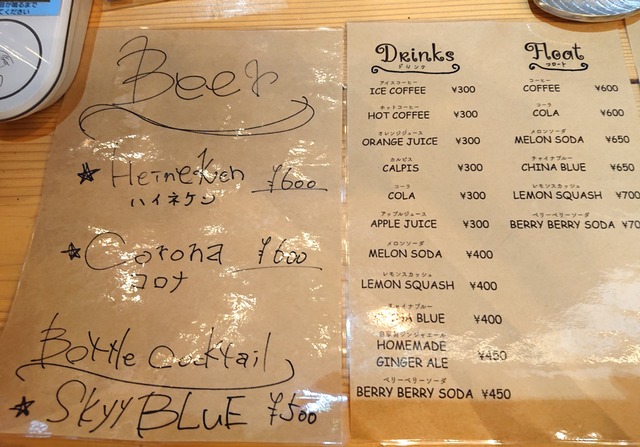 Beer
Heineken ¥600
ハイネケン
Corona ¥600
コロナ
Bottle Cocktail
SKYY BLUE ¥500
Drinks
ドリンク
アイスコーヒー
ICE COFFEE ¥300
ホットコーヒー
HOT COFFEE ¥300
オレンジジュース
ORANGE JUICE ¥300
カルピス
CALPIS ¥300
コーラ
COLA ¥300
アップルジュース
APPLE JUICE ¥300
メロンソーダ
MELON SODA ¥400
レモンスカッシュ
LEMON SQUASH ¥400
チャイナブルー
BLUE ¥400
自家製ジンジャエール
HOMEMADE
GINGER ALE ¥450
ベリーベリーソーダ
BERRY BERRY SODA ¥450
Float
フロート
コーヒー
COFFEE ¥600
コーラ
COLA ¥600
メロンソーダ
MELON SODA ¥650
チャイナブルー
CHINA BLUE ¥650
レモンスカッシュ
LEMON SQUASH ¥700
ベリーベリーソーダ
BERRY BERRY SODA ¥70